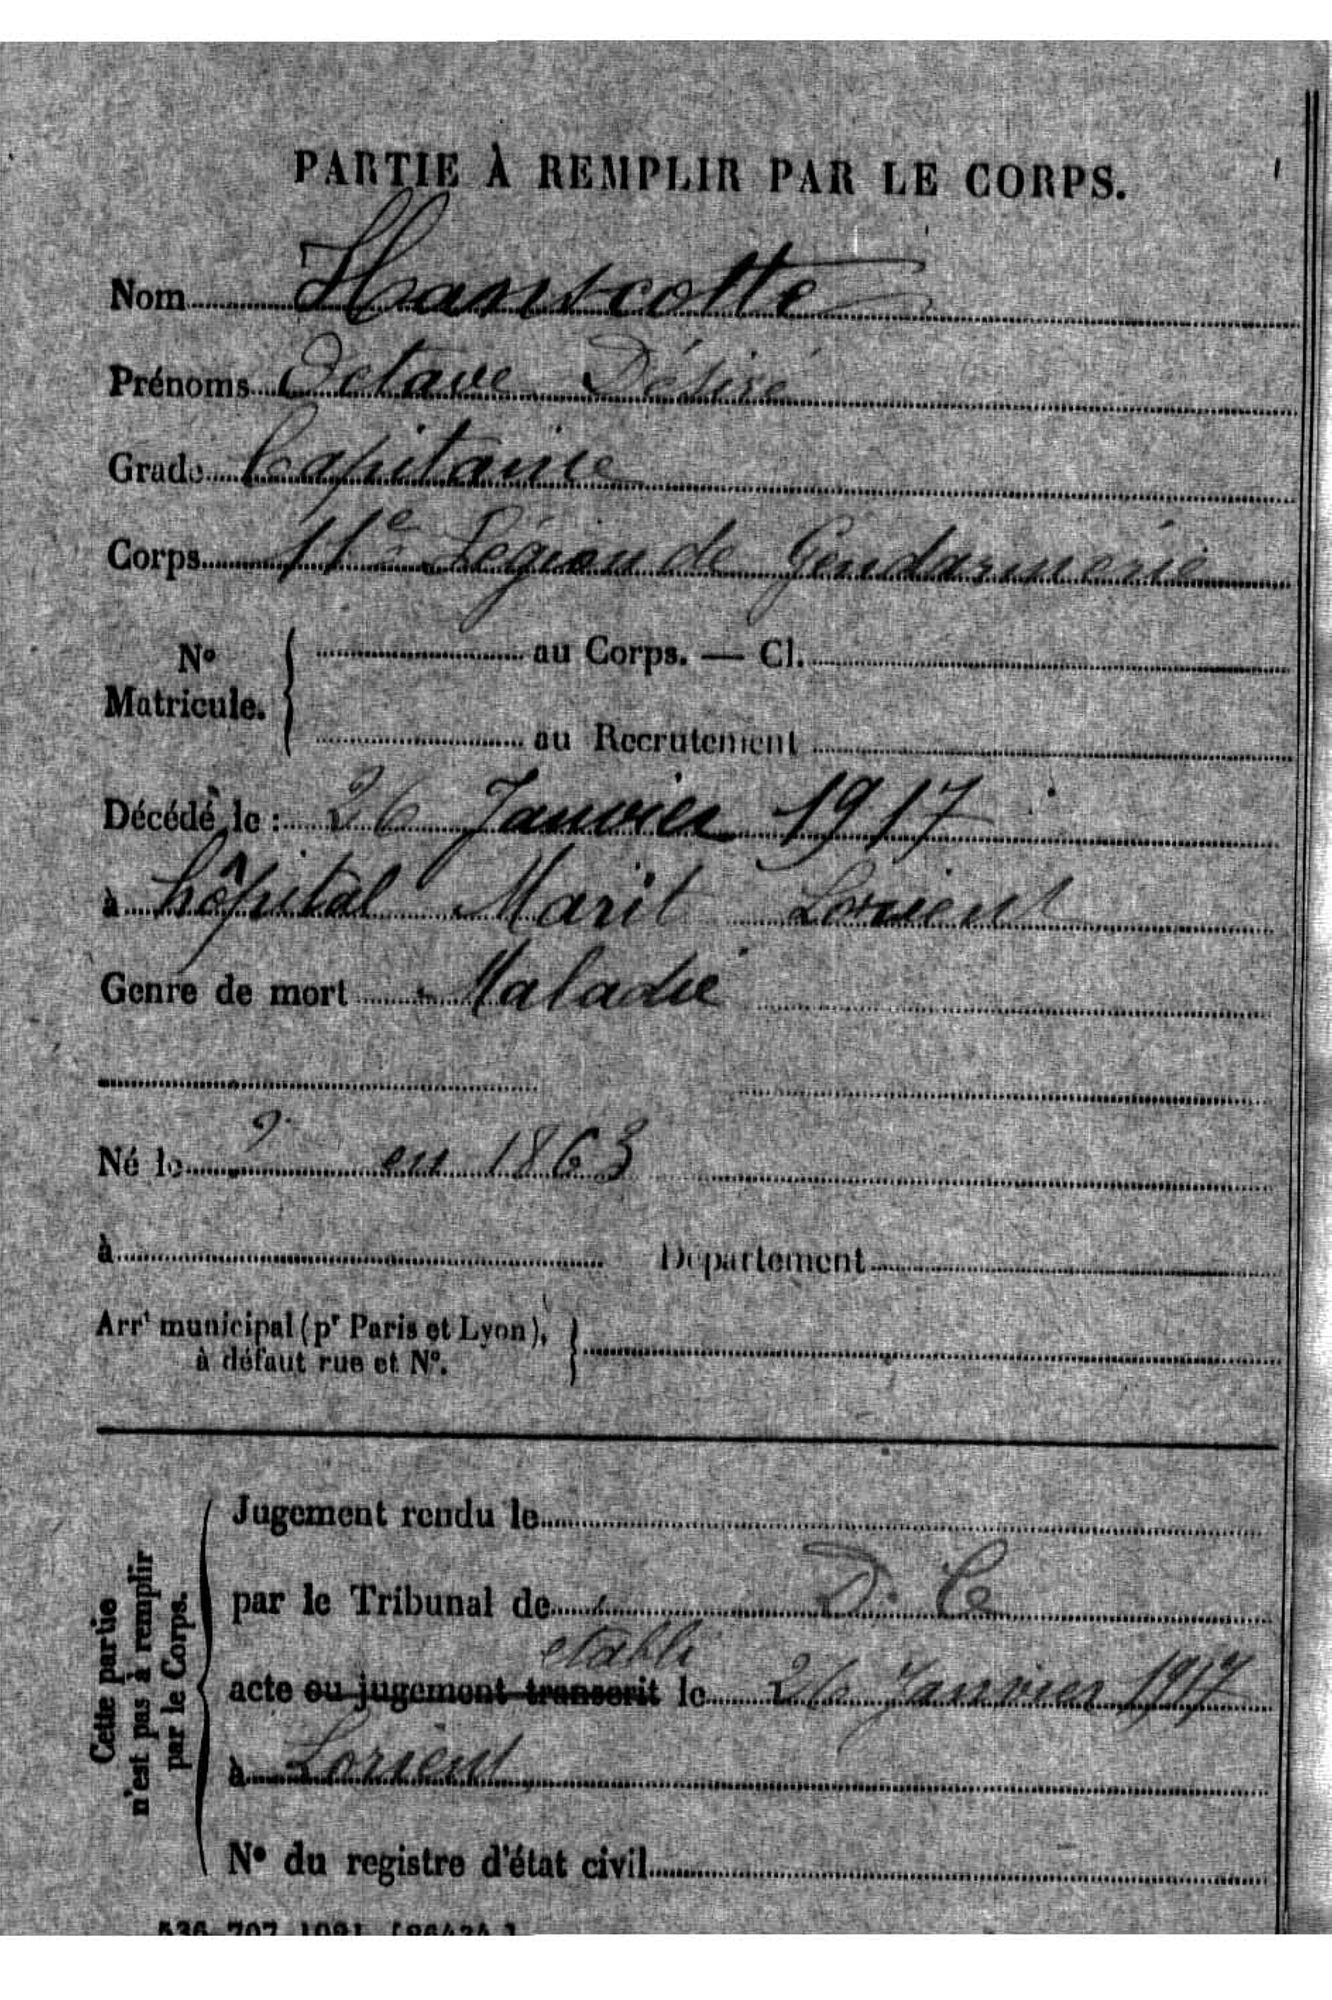 PARTIE À REMPLIR PAR LE CORPS.
Nom Hanscotte
Prénoms Octave Désiré
Grade Capitaine
Corps 11e Légion de Gendarmerie
No Matricule. { au Corps. — Cl.
au Recrutement
Décédé le : 26 Janvier 1917
à hôpital Marit Lorient
Genre de mort Maladie
Né le ? en 1863
à Département
Arrt municipal (pr Paris et Lyon), à défaut rue et No. }
Cette partie n'est pas à remplir par le Corps.
Jugement rendu le
par le Tribunal de D. C
établi
acte ou jugement transcrit le 26 Janvier 1917
à Lorient
No du registre d'état civil
536-707-1921. [26434.]